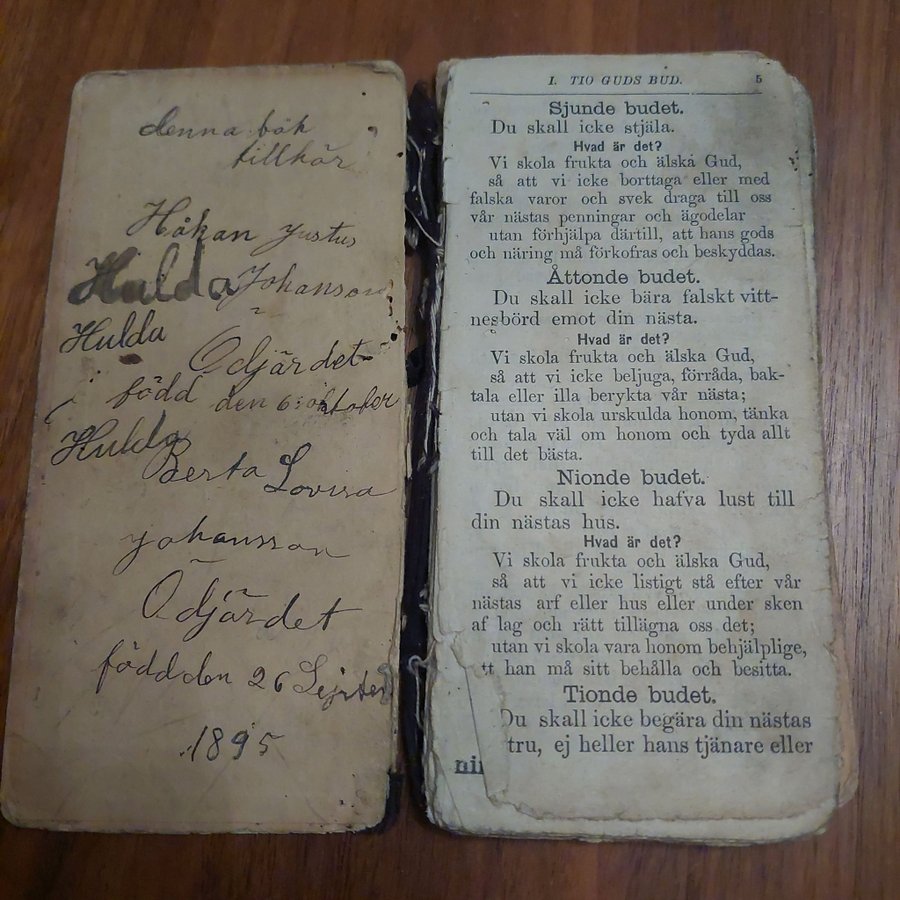 denna bok
tillhör
Håkan Justus
Hulda Johanson
Hulda
Ödjärdet
i född den 6: oktober
Hulda
Berta Lovisa
Johansson
Ödjärdet
född den 26 Septe
1895
I. TIO GUDS BUD. 5
Sjunde budet.
Du skall icke stjäla.
Hvad är det?
Vi skola frukta och älska Gud,
så att vi icke borttaga eller med
falska varor och svek draga till oss
vår nästas penningar och ägodelar
utan förhjälpa därtill, att hans gods
och näring må förkofras och beskyddas.
Åttonde budet.
Du skall icke bära falskt vitt-
nesbörd emot din nästa.
Hvad är det?
Vi skola frukta och älska Gud,
så att vi icke beljuga, förråda, bak-
tala eller illa berykta vår nästa;
utan vi skola urskulda honom, tänka
och tala väl om honom och tyda allt
till det bästa.
Nionde budet.
Du skall icke hafva lust till
din nästas hus.
Hvad är det?
Vi skola frukta och älska Gud,
så att vi icke listigt stå efter vår
nästas arf eller hus eller under sken
af lag och rätt tillägna oss det;
utan vi skola vara honom behjälplige,
tt han må sitt behålla och besitta.
Tionde budet.
Du skall icke begära din nästas
tru, ej heller hans tjänare eller
nin